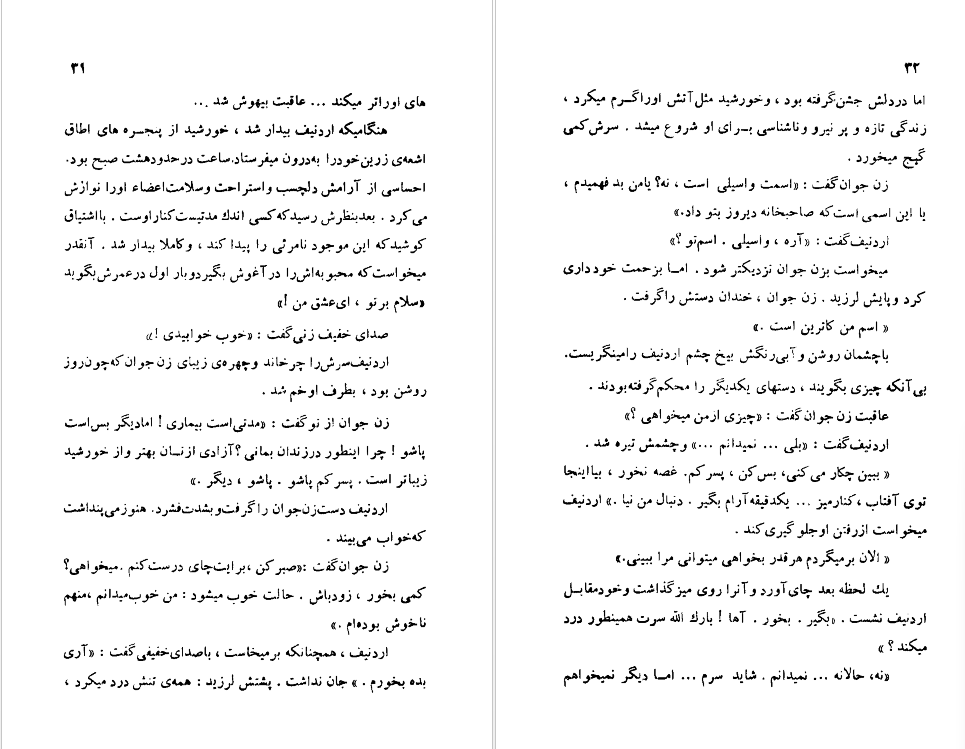 ۳۱
های اوراتر میکند ... عاقبت بیهوش شد ...
هنگامیکه اردنیف بیدار شد ، خورشید از پنجـره های اطاق
اشعه‌ی زرین‌خودرا به‌درون میفرستاد.ساعت درحدودهشت صبح بود.
احساسی از آرامش دلچسب واستراحت وسلامت‌اعضاء اورا نوازش
می‌کرد . بعدبنظرش رسیدکه‌کسی اندك مدتیست‌کناراوست . بااشتیاق
کوشیدکه این موجود نامرئی را پیداکند ، وکاملا بیدار شد . آنقدر
میخواست‌که محبوبه‌اش‌را درآغوش بگیردوبار اول درعمرش‌بگوید
«سلام برتو ، ای‌عشق من !»
صدای خفیف زنی‌گفت : «خوب خوابیدی !»
اردنیف‌سرش‌را چرخاند وچهره‌ی زیبای زن جوان‌که‌چون‌روز
روشن بود ، بطرف اوخم‌شد .
زن جوان از نوگفت : «مدتی‌است بیماری ! امادیگر بس‌است
پاشو ! چرا اینطور درزندان بمانی ؟آزادی ازنسان بهتر واز خورشید
زیباتر است . پسرکم پاشو . پاشو ، دیگر .»
اردنیف دست‌زن‌جوان راگرفت‌وبشدت‌فشرد. هنوزمی‌پنداشت
که‌خواب می‌بیند .
زن جوان‌گفت :«صبرکن ،برایت‌چای درست‌کنم .میخواهی؟
کمی بخور ، زودباش . حالت خوب میشود : من خوب‌میدانم ،منهم
ناخوش بوده‌ام .»
اردنیف ، همچنانکه برمیخاست ، باصدای‌خفیفی‌گفت : «آری
بده بخورم . » جان نداشت . پشتش لرزید : همه‌ی تنش درد میکرد ،
۳۲
اما دردلش جشن‌گرفته بود ، وخورشید مثل‌آتش اوراگـرم میکرد ،
زندگی تازه و پر نیرو وناشناسی بـرای او شروع میشد . سرش‌کمی
گیج میخورد .
زن جوان‌گفت : «اسمت واسیلی است ، نه؟ یامن بد فهمیدم ،
یا این اسمی است‌که صاحبخانه دیروز بتو داد.»
اردنیف‌گفت : «آره ، واسیلی . اسم‌تو ؟»
میخواست بزن جوان نزدیکتر شود . امـا بزحمت خودداری
کرد وپایش لرزید . زن جوان ، خندان دستش راگرفت .
« اسم من کاترین است .»
باچشمان روشن وآبی‌رنگش بیخ چشم اردنیف رامینگریست.
بی‌آنکه چیزی بگویند ، دستهای یکدیگر را محکم‌گرفته‌بودند .
عاقبت زن جوان‌گفت : «چیزی ازمن میخواهی ؟»
اردنیف‌گفت : «بلی ... نمیدانم ...» وچشمش تیره شد .
« ببین چکار می‌کنی، بس‌کن ، پسرکم. غصه نخور ، بیااینجا
توی آفتاب ،کنارمیز ... یکدقیقه آرام بگیر . دنبال من نیا .» اردنیف
میخواست ازرفتن اوجلوگیری‌کند .
« الان برمیگردم هرقدر بخواهی میتوانی مرا ببینی.»
یك لحظه بعد چای‌آورد وآنرا روی میزگذاشت وخودمقابـل
اردنیف نشست . «بگیر . بخور . آها ! بارك الله سرت همینطور درد
میکند ؟ »
«نه، حالانه ... نمیدانم . شاید سرم ... امـا دیگر نمیخواهم